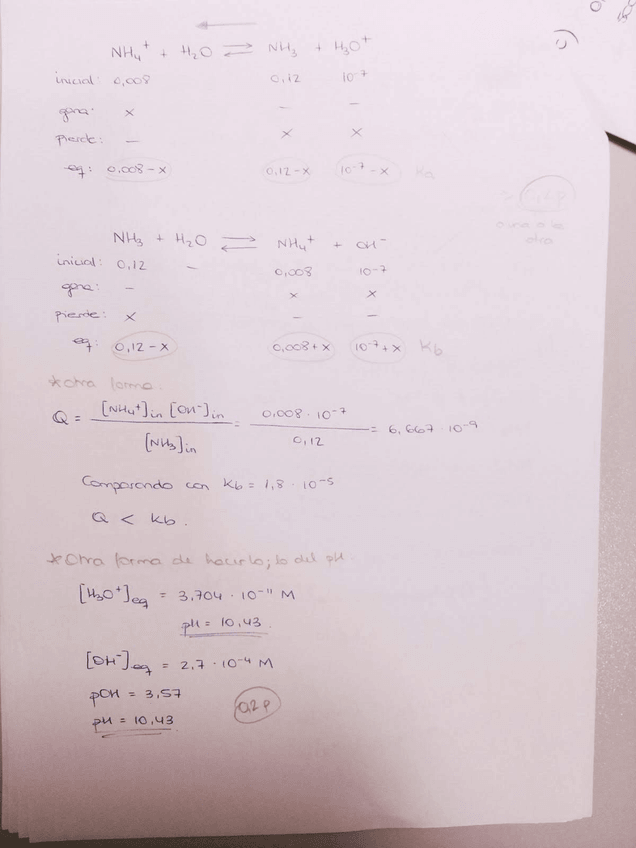 NH₄⁺ + H₂O ⇌ NH₃ + H₃O⁺
inicial: 0,008 0,12 10⁻⁷
gana: x — —
pierde: — x x
eq: 0,008-x 0,12-x 10⁻⁷-x Ka
NH₃ + H₂O ⇌ NH₄⁺ + OH⁻
inicial: 0,12 — 0,008 10⁻⁷
gana: — x x
pierde: x — —
eq: 0,12-x 0,008+x 10⁻⁷+x Kb
*otra forma.
Q = [NH₄⁺]in [OH⁻]in / [NH₃]in = 0,008 · 10⁻⁷ / 0,12 = 6,667 · 10⁻⁹
Comparando con Kb = 1,8 · 10⁻⁵
Q < Kb.
*Otra forma de hacerlo; lo del pH.
[H₃O⁺]eq = 3,704 · 10⁻¹¹ M
pH = 10,43.
[OH⁻]eq = 2,7 · 10⁻⁴ M
pOH = 3,57
pH = 10,43
0,2 p